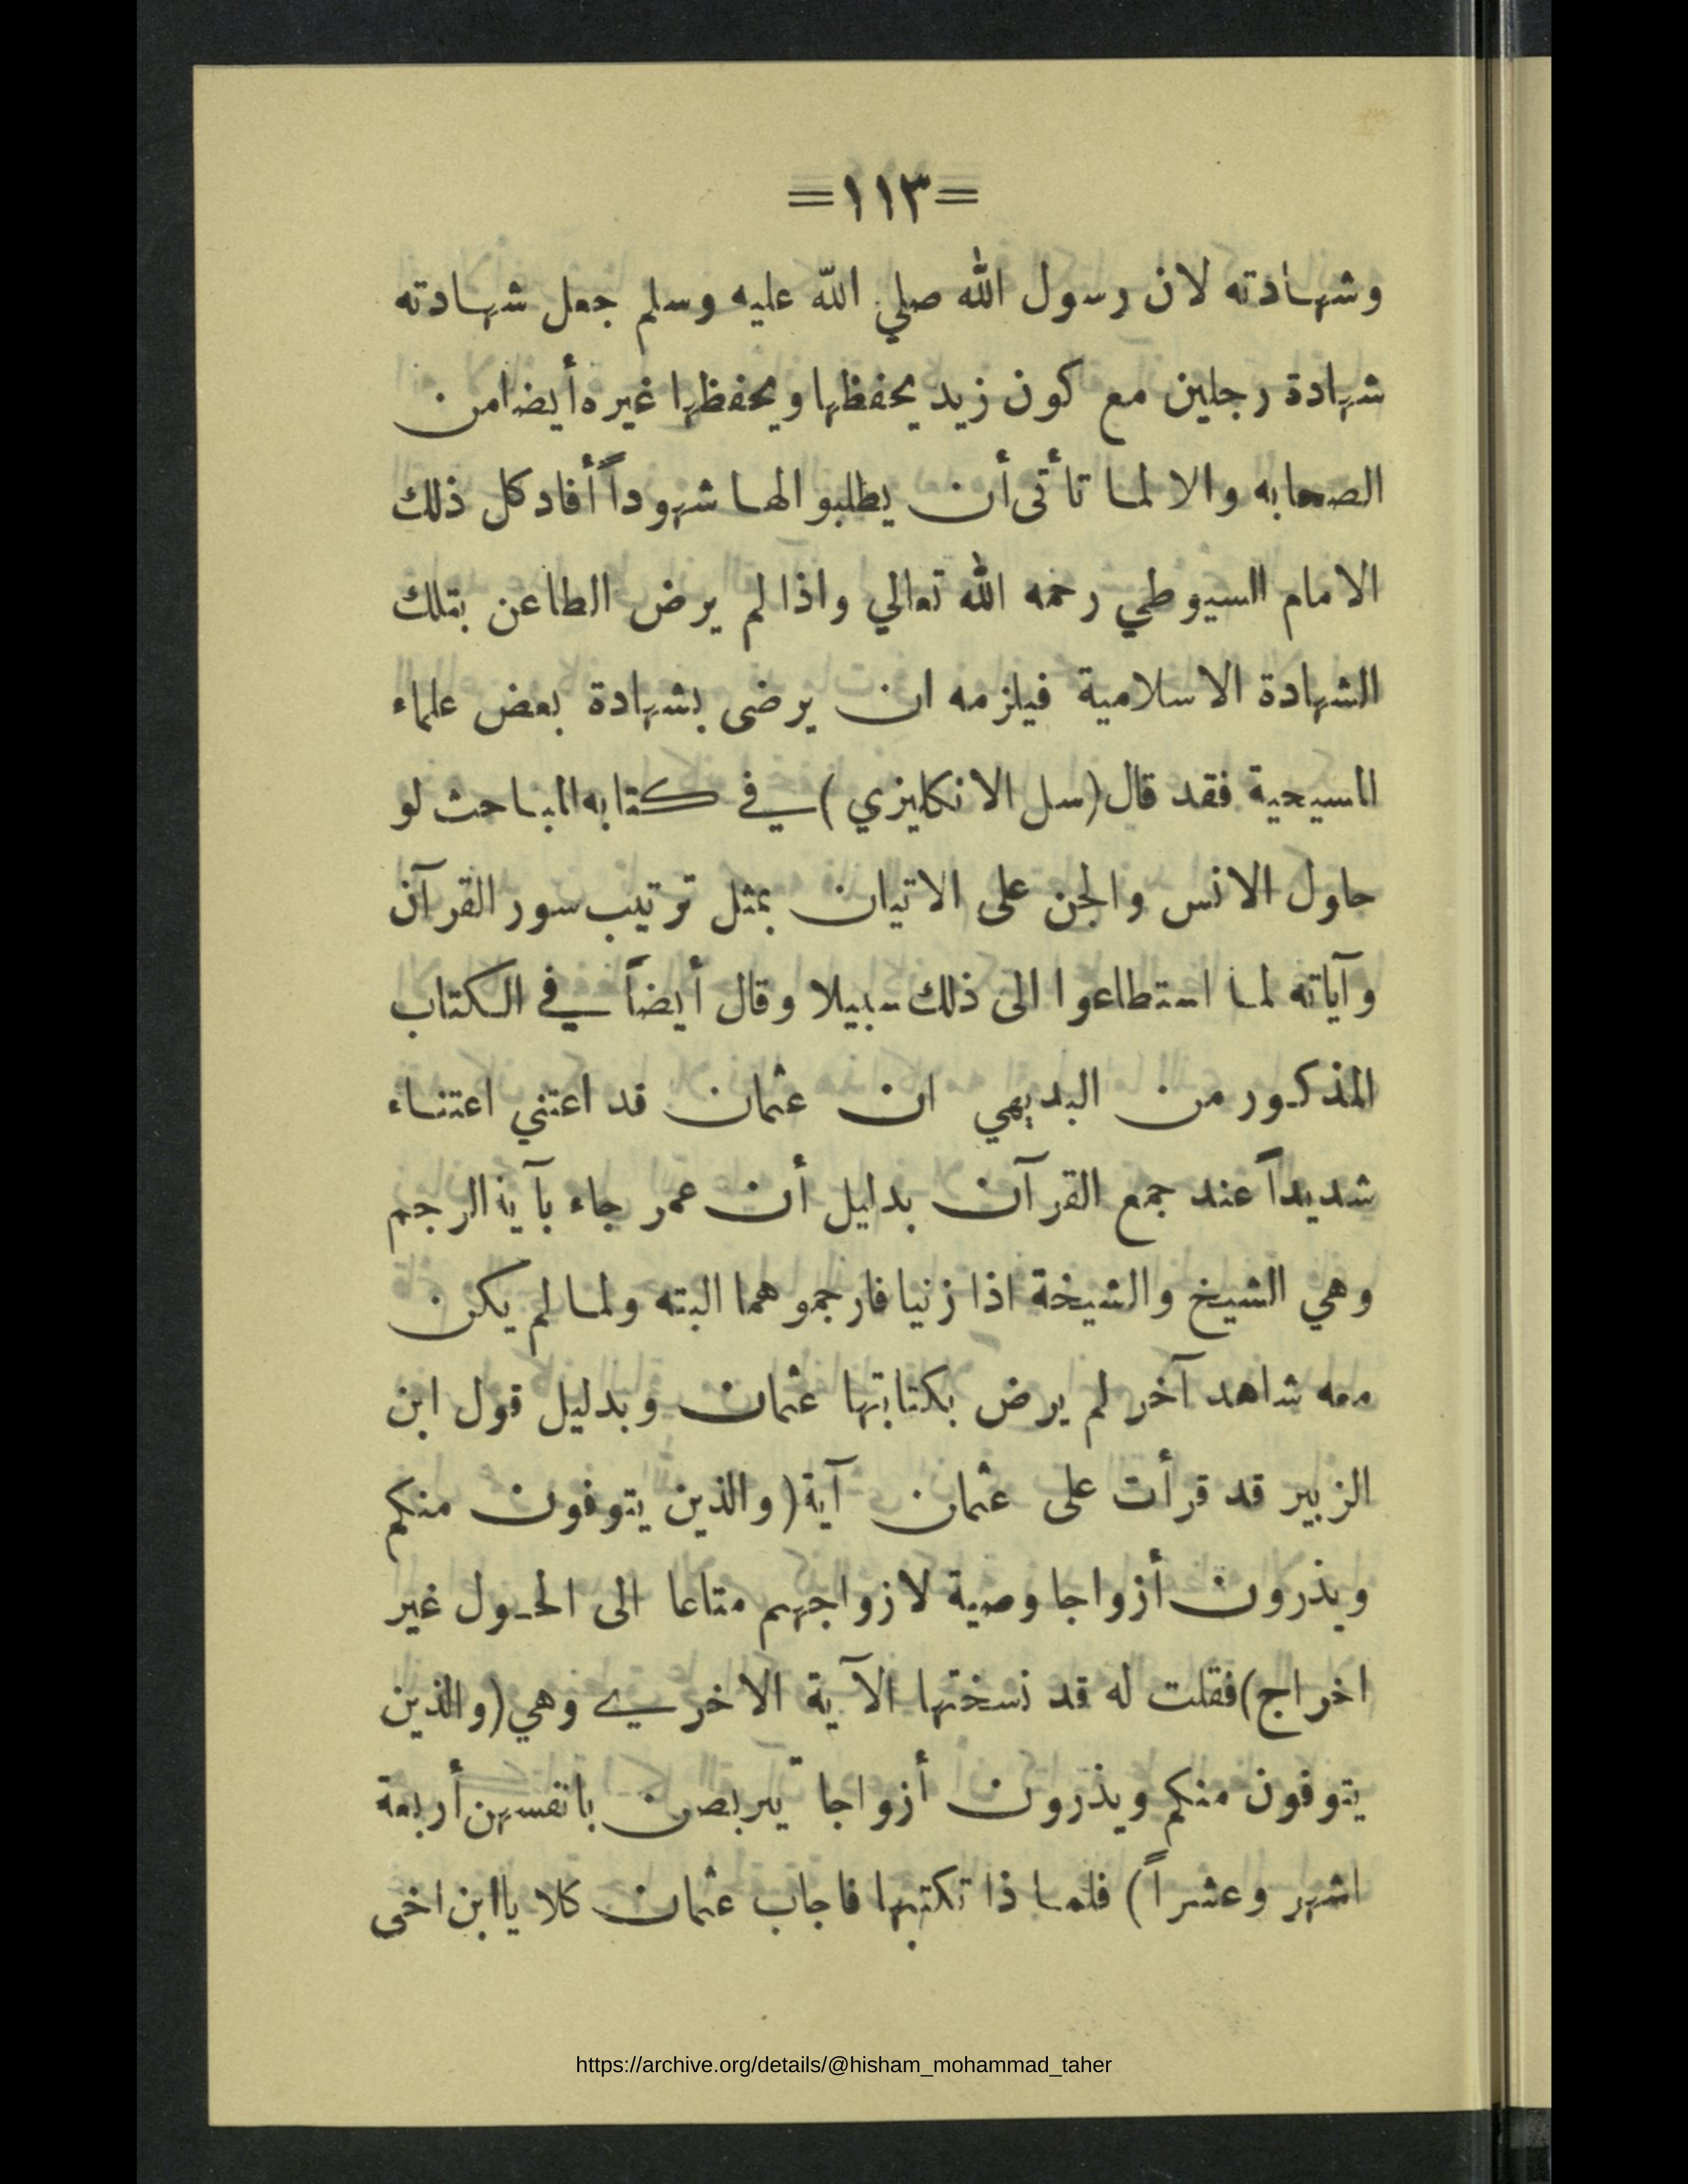 =١١٣=
وشهادته لان رسول الله صلي الله عليه وسلم جعل شهادته
شهادة رجلين مع كون زيد يحفظها ويحفظها غيره أيضا من
الصحابه والا لما تأتى أن يطلبوا لها شهوداً أفاد كل ذلك
الامام السيوطي رحمه الله تعالي واذا لم يرض الطاعن بتلك
الشهادة الاسلامية فيلزمه ان يرضى بشهادة بعض علماء
المسيحية فقد قال (سل الانكليزي) في كتابه المباحث لو
حاول الانس والجن على الاتيان بمثل ترتيب سور القرآن
وآياته لما استطاعوا الى ذلك سبيلا وقال أيضاً في الكتاب
المذكور من البديهي ان عثمان قد اعتني اعتناء
شديداً عند جمع القرآن بدليل أن عمر جاء بآية الرجم
وهي الشيخ والشيخة اذا زنيا فارجموهما البته ولما لم يكن
معه شاهد آخر لم يرض بكتابتها عثمان وبدليل قول ابن
الزبير قد قرأت على عثمان آية (والذين يتوفون منكم
ويذرون أزواجا وصية لازواجهم متاعا الى الحول غير
اخراج) فقلت له قد نسختها الآية الاخرى وهي (والذين
يتوفون منكم ويذرون أزواجا يتربصن بانفسهن أربعة
اشهر وعشراً) فلماذا تكتبها فاجاب عثمان كلا يا ابن اخى
https://archive.org/details/@hisham_mohammad_taher